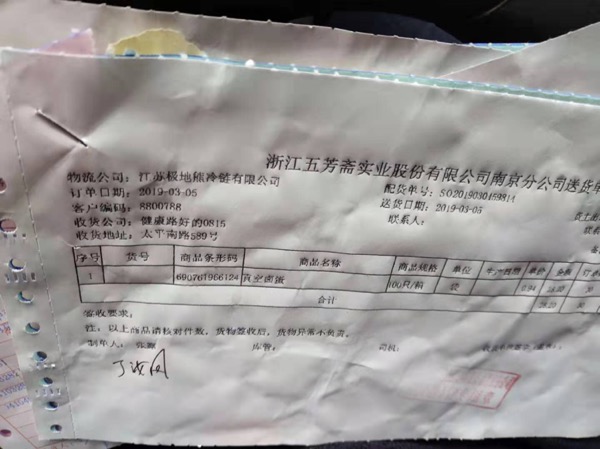 浙江五芳斋实业股份有限公司南京分公司送货单
物流公司: 江苏极地熊冷链有限公司
配货单号: SO2019030459814
订单日期: 2019-03-05
送货日期: 2019-03-05
客户编码: 8800788
联系人:
收货公司: 健康路好的0815
收货地址: 太平南路589号
序号 货号 商品条形码 商品名称 商品规格 单位 生产日期 单价 金额
1 690761966124 真空卤蛋 100只/箱 袋 0.94 28.20 30
合计 28.20 30
签收要求:
注: 以上商品请核对件数, 货物签收后, 货物异常不负责。
制单人: 张 库管: 司机: